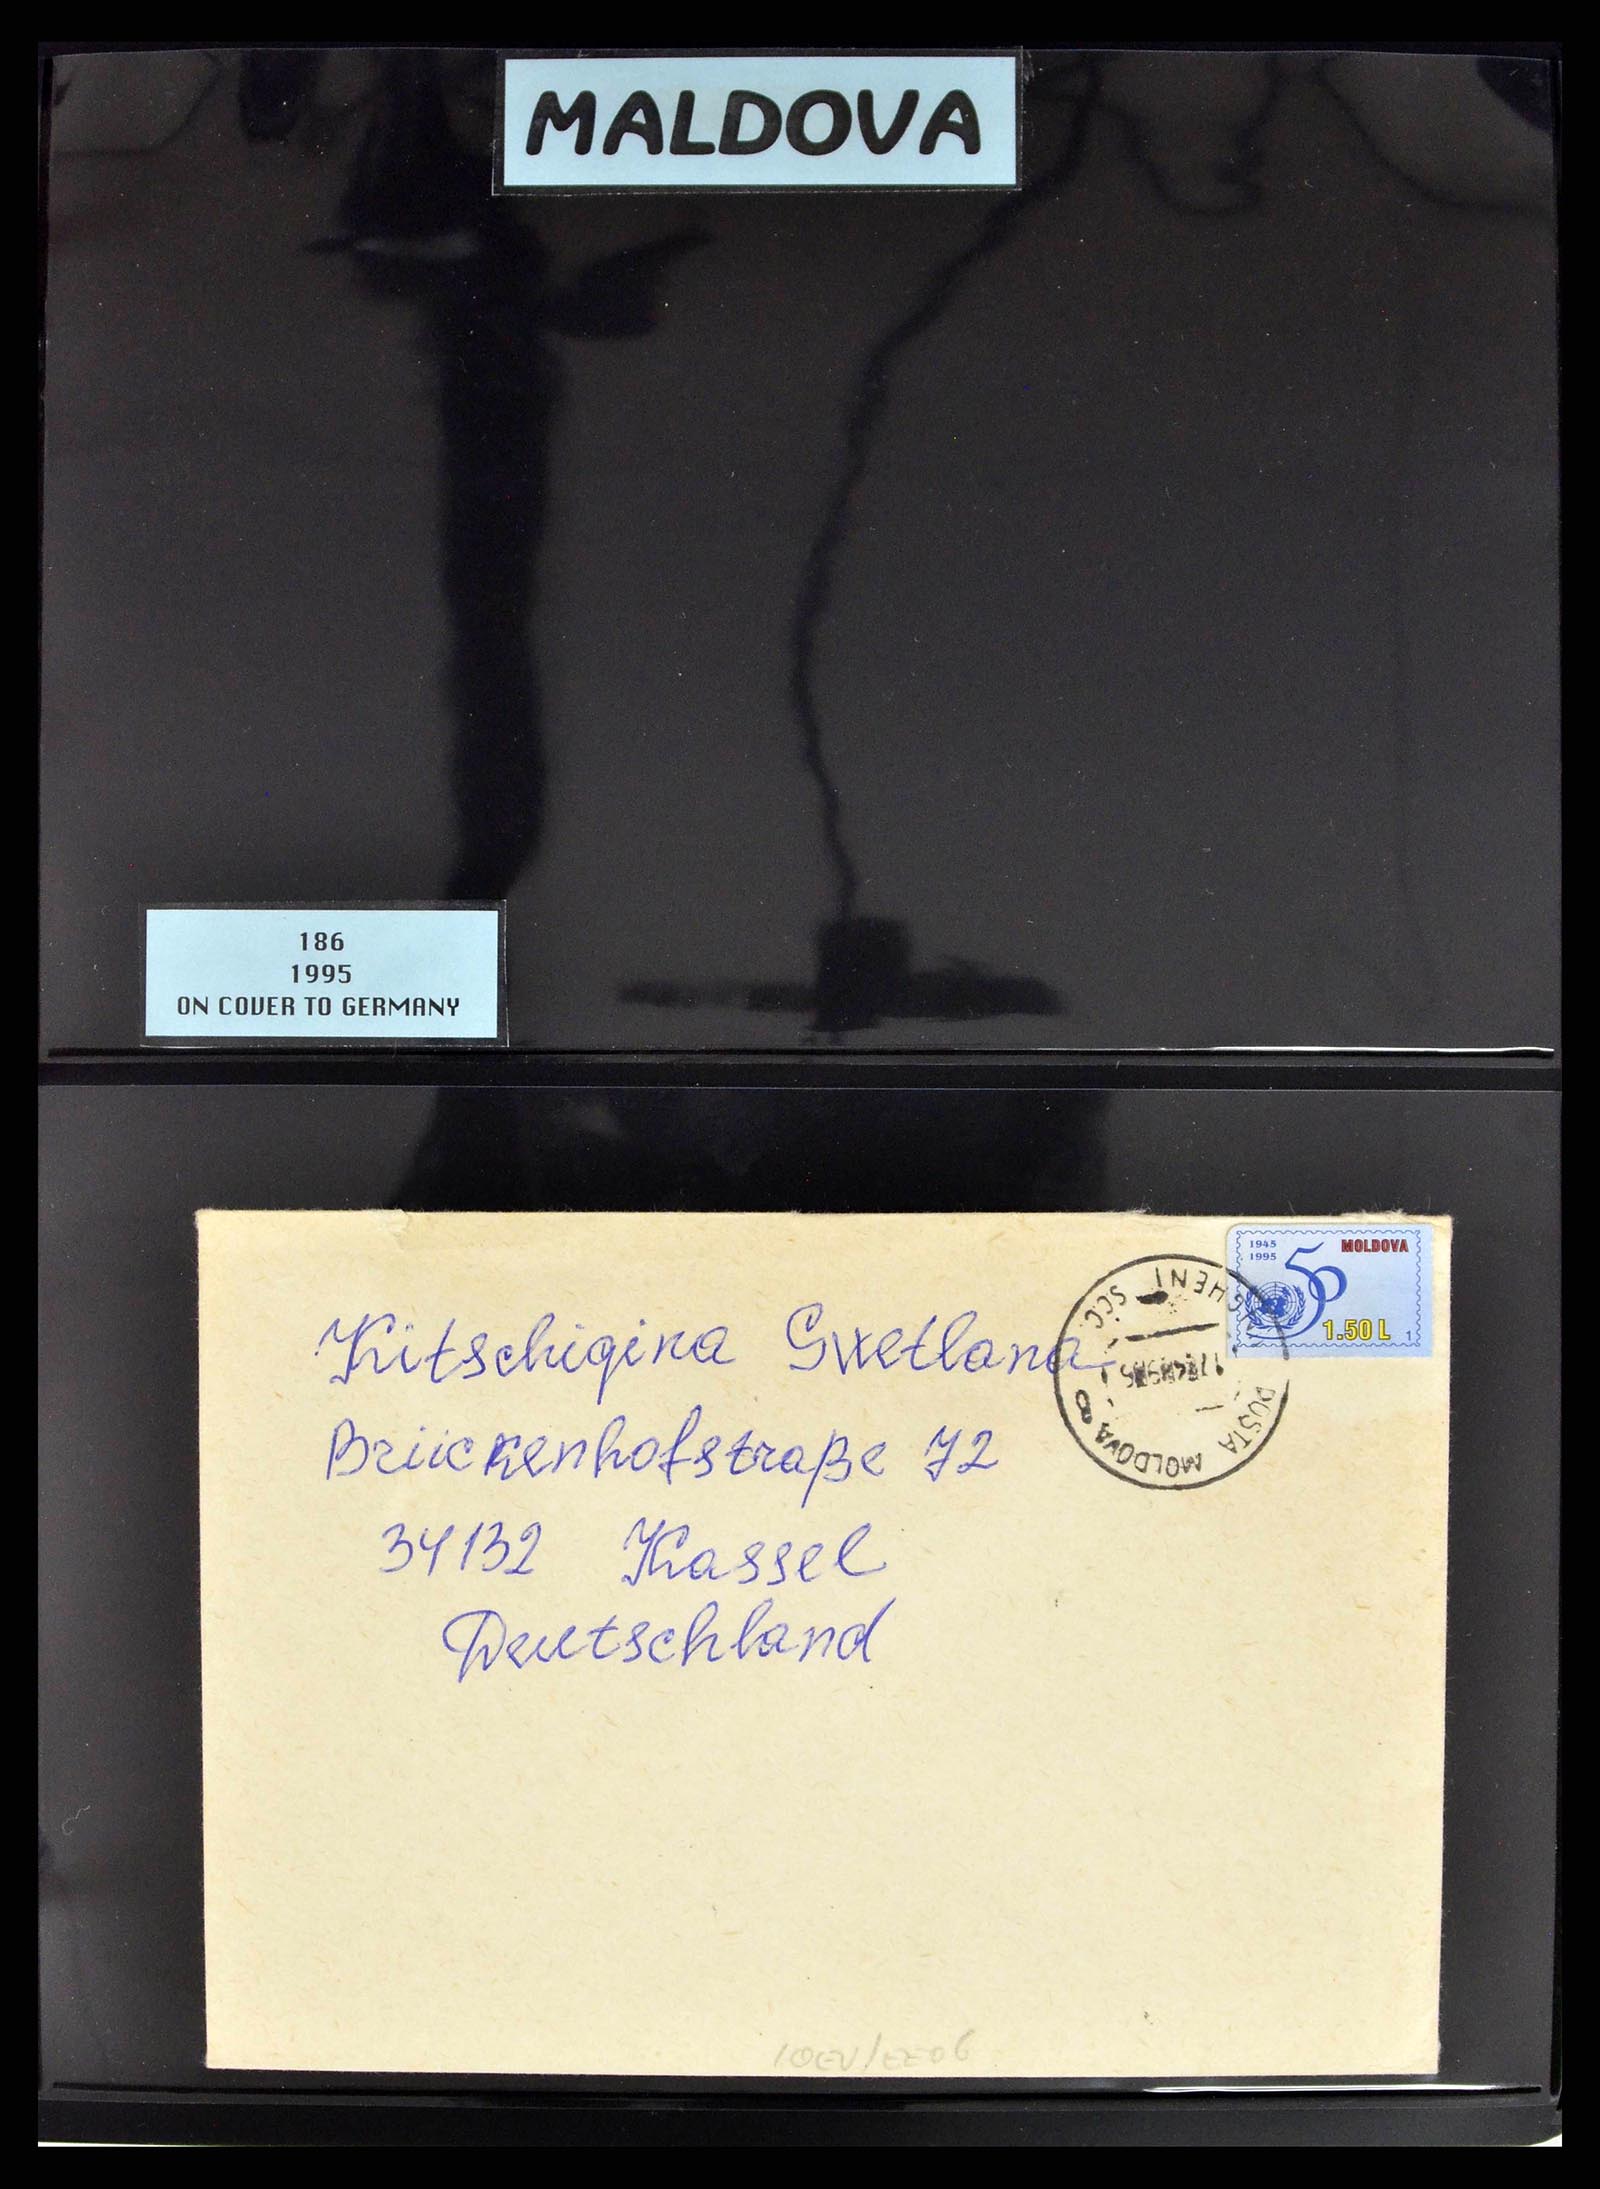 MALDOVA
186
1995
ON COVER TO GERMANY
1945
1995
50
MOLDOVA
1.50 L
1
POSTA MOLDOVA
Kitschigina Swetlana
Brückenhofstraße 72
34132 Kassel
Deutschland